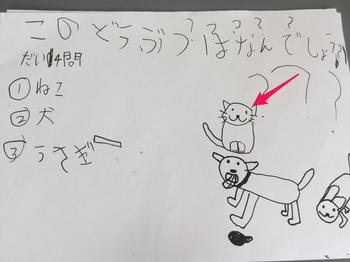 ? ? ? ? ?
このどうぶつはなんでしょう?
だい4問
① ねこ
② 犬
③ うさぎ
? ? ?